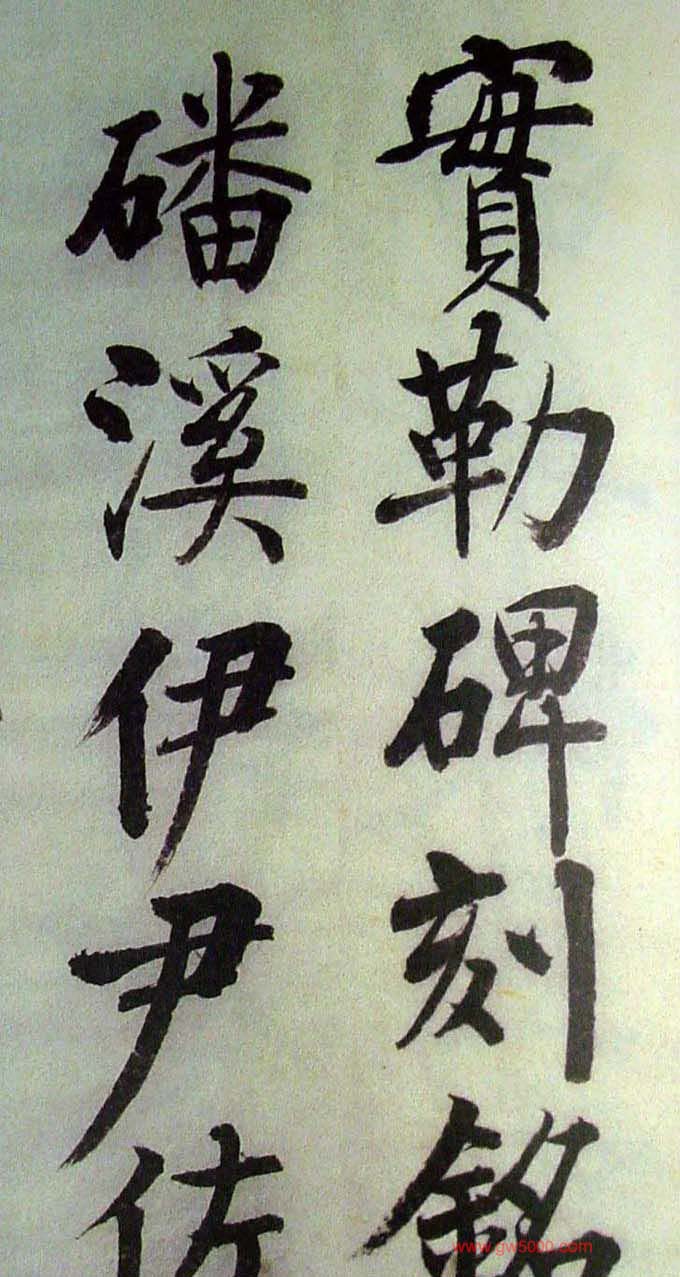 實勒碑刻銘
磻溪伊尹佐
www.gw5000.com